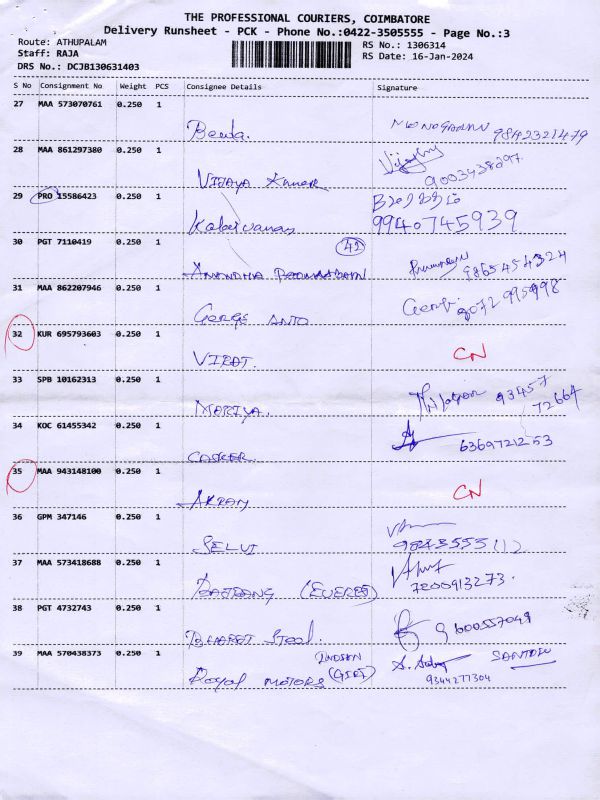 THE PROFESSIONAL COURIERS, COIMBATORE
Delivery Runsheet - PCK - Phone No.:0422-3505555 - Page No.:3
Route: ATHUPALAM
Staff: RAJA
DRS No.: DCJB130631403
RS No.: 1306314
RS Date: 16-Jan-2024
S No Consignment No Weight PCS Consignee Details Signature
27 MAA 573070761 0.250 1
9842321479
28 MAA 861297380 0.250 1
VIJAYA Kumar
29 PRO 15586423 0.250 1
9940745939
30 PGT 7110419 0.250 1
42
9865454324
31 MAA 862207946 0.250 1
GEORGE ANTO
9072995998
32 KUR 695793603 0.250 1
VIRAT. CN
33 SPB 10162313 0.250 1
MARIYA. 93457
72664
34 KOC 61455342 0.250 1
63697212 53
35 MAA 943148100 0.250 1
AKRAM CN
36 GPM 347146 0.250 1
SELVI
37 MAA 573418688 0.250 1
(EVEREST)
7200913273.
38 PGT 4732743 0.250 1
BHARAT Steel. 9600557049
39 MAA 570438373 0.250 1
Royal MOTORS
9344277304